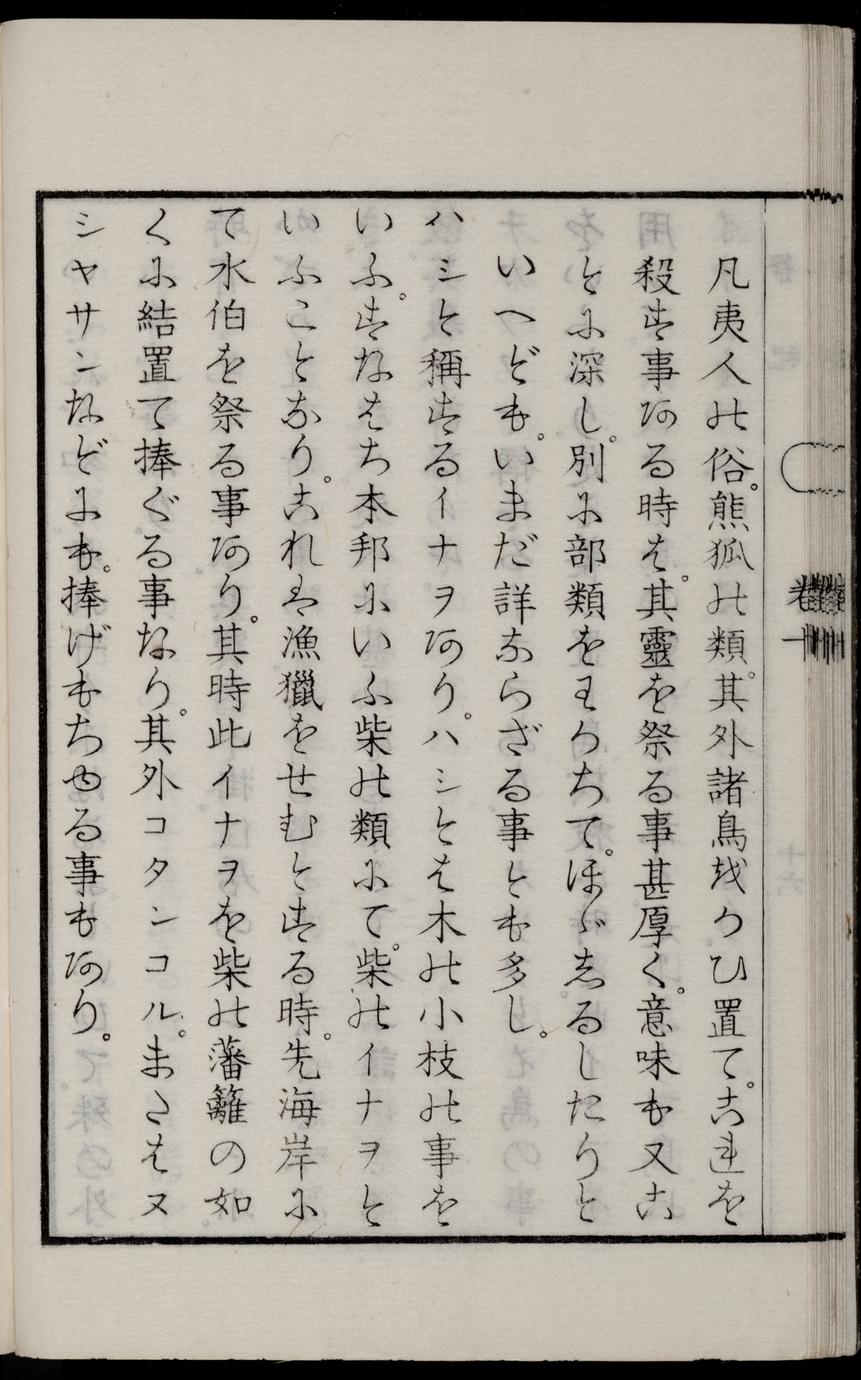 凡夷人の俗。熊狐の類。其外諸鳥をかひ置て。これを
殺す事ある時は。其靈を祭る事甚厚く。意味も又こ
とに深し。別に部類をわかちて。ほゞしるしたりと
いへども。いまだ詳ならざる事とも多し。
ハシと稱するイナヲあり。ハシとは木の小枝の事を
いふ。すなはち本邦にいふ柴の類にて。柴のイナヲと
いふことなり。これは漁獵をせむとする時。先海岸に
て水伯を祭る事あり。其時此イナヲを柴の藩籬の如
くに結置て捧ぐる事なり。其外コタンコル。またはヌ
シヤサンなどにも。捧げもちゆる事もあり。
卷一